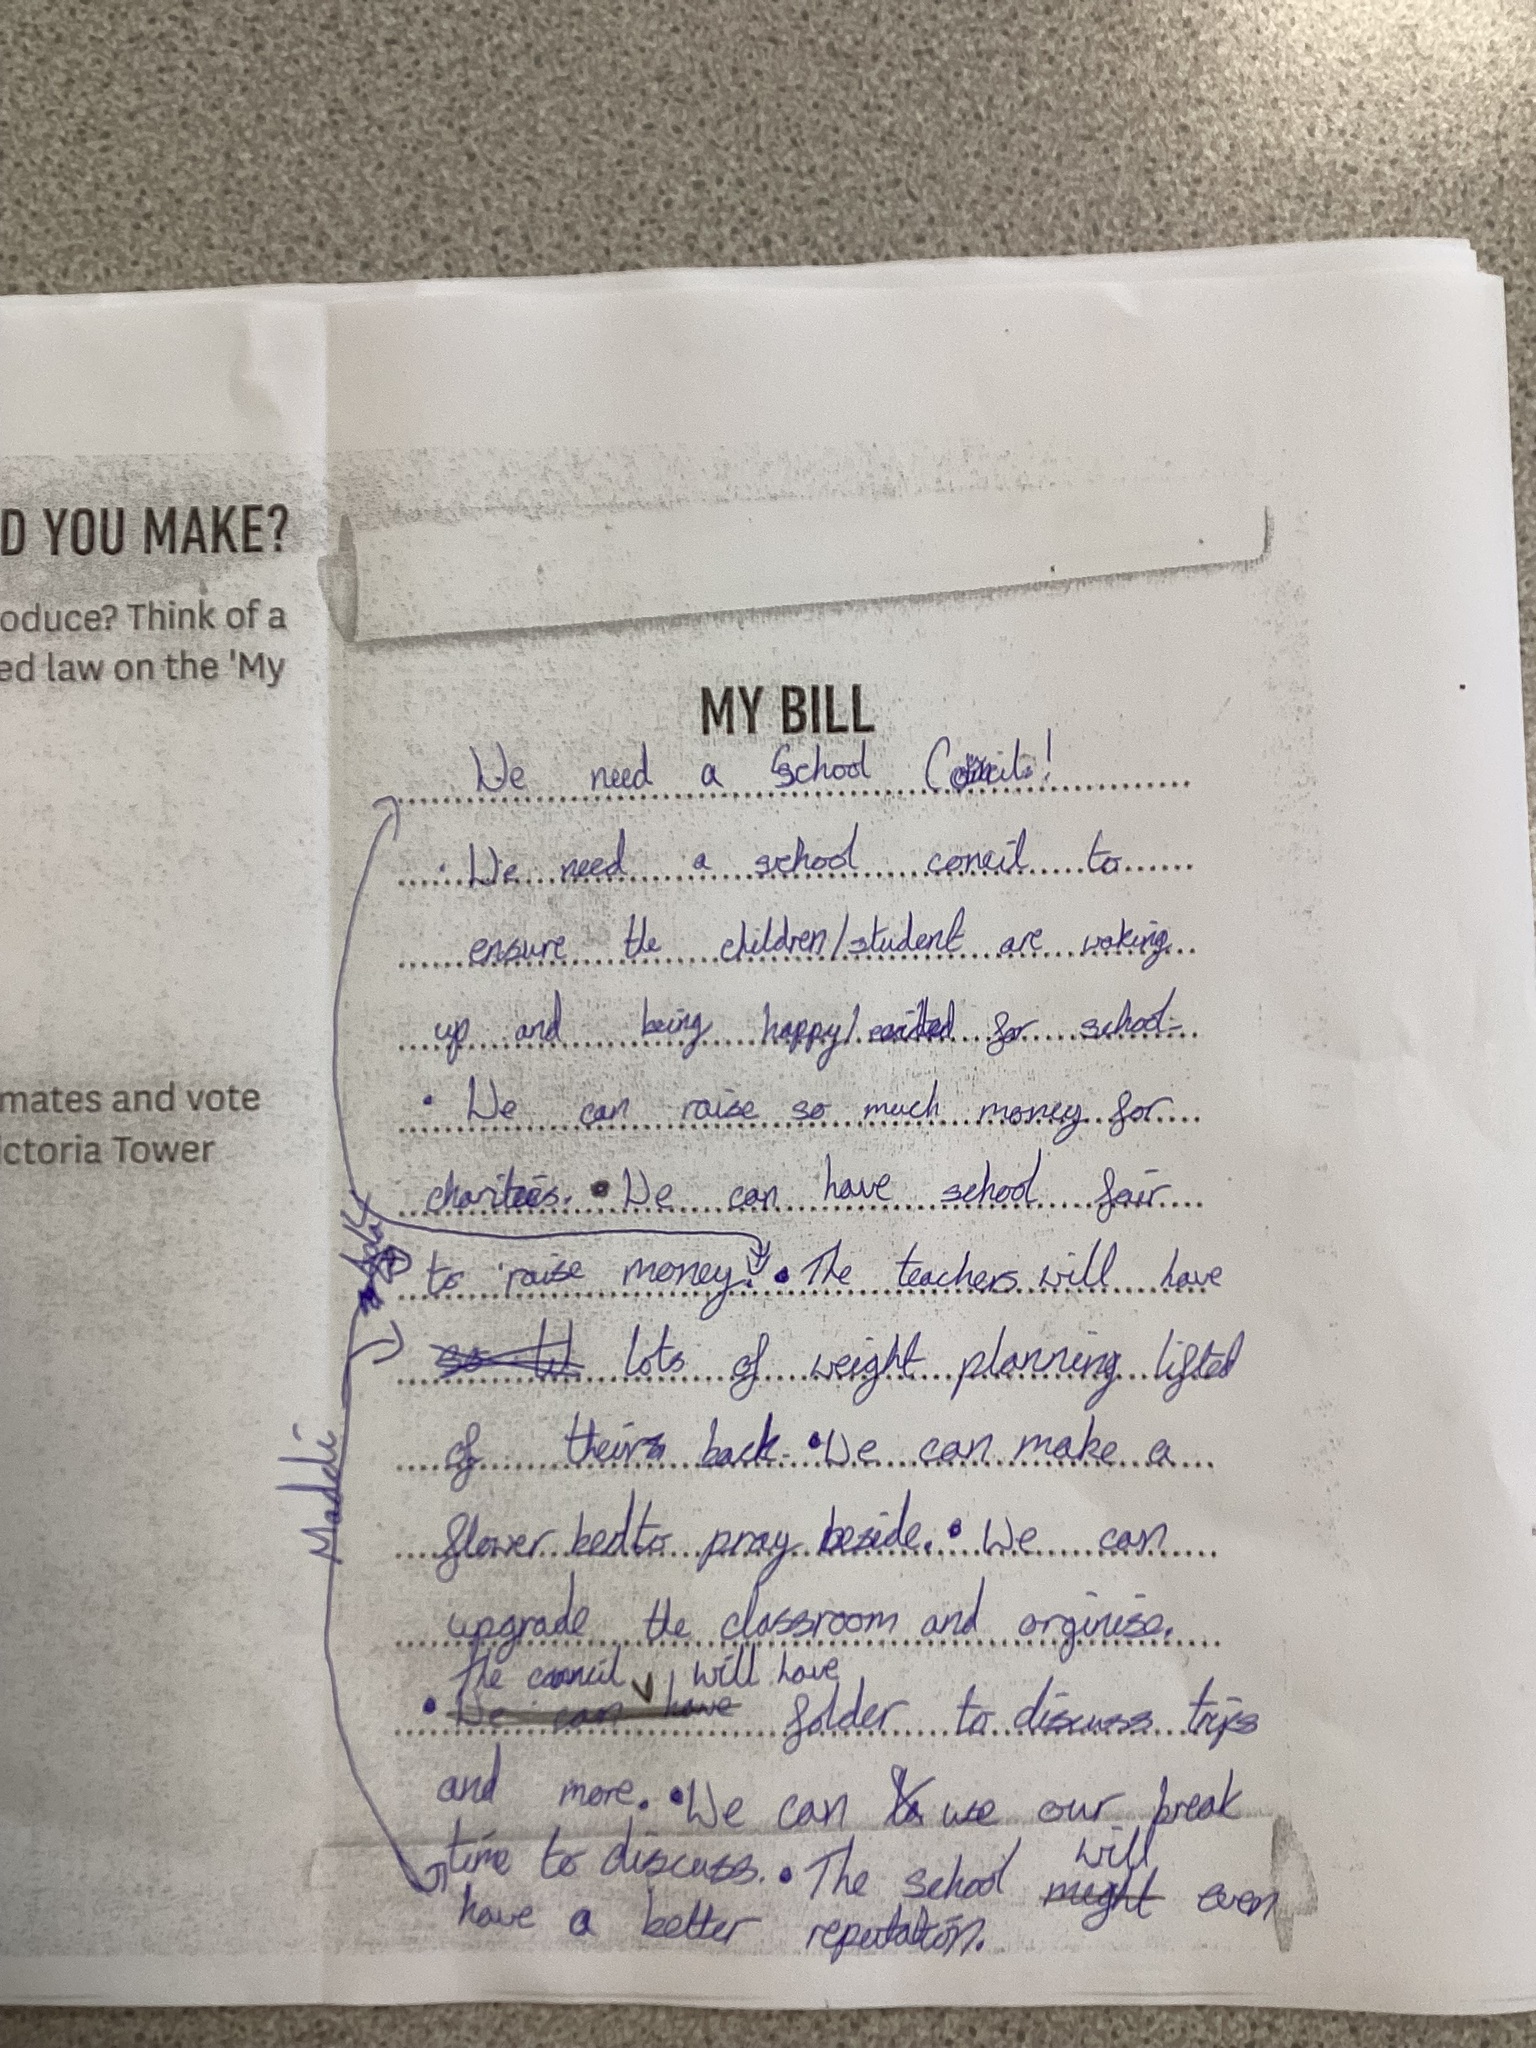 D YOU MAKE?
oduce? Think of a
ed law on the 'My
mates and vote
ictoria Tower
MY BILL
We need a School Concil!
• We need a school concil to
ensure the children/student are woking
up and being happy/excited for school.
• We can raise so much money for
charitees. • We can have school fair
to raise money. • The teachers will have
so lots of weight planning lifted
of theirs back. • We can make a
flower bed to pray beside. • We can
upgrade the classroom and orginise.
The council will have
• We can have folder to discuss trips
and more. • We can use our break
time to discuss. • The school might even
will
have a better reputation.
Maddi